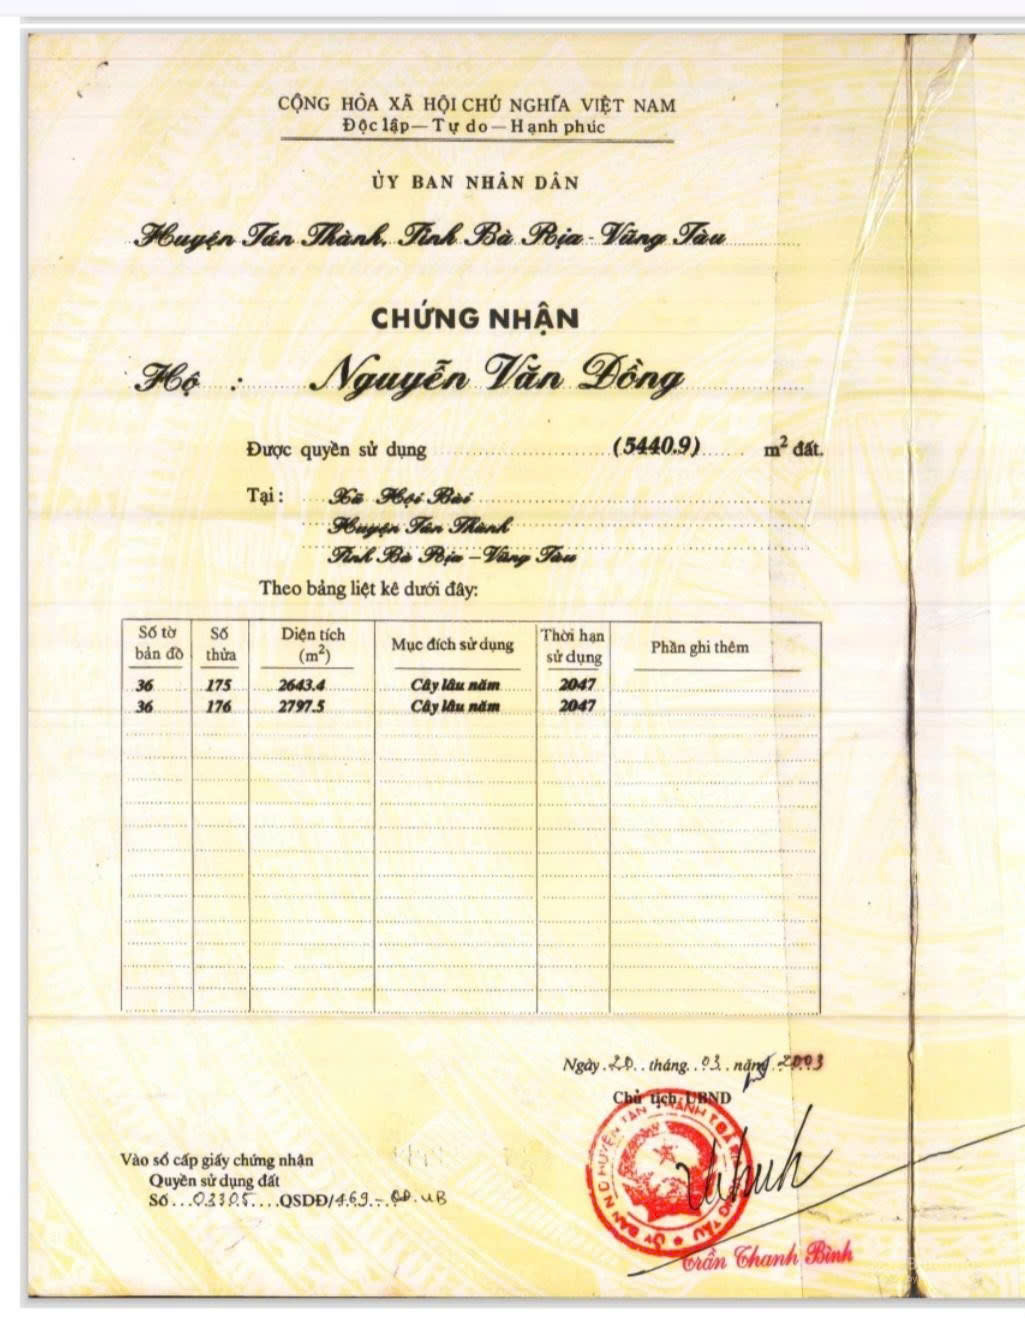 CỘNG HÒA XÃ HỘI CHỦ NGHĨA VIỆT NAM
Độc lập—Tự do—Hạnh phúc
ỦY BAN NHÂN DÂN
Huyện Tân Thành, Tỉnh Bà Rịa - Vũng Tàu
CHỨNG NHẬN
Hộ : Nguyễn Văn Đồng
Được quyền sử dụng (5440.9) m² đất.
Tại : Xã Hội Bài
Huyện Tân Thành
Tỉnh Bà Rịa - Vũng Tàu
Theo bảng liệt kê dưới đây:
Số tờ bản đồ Số thửa Diện tích (m²) Mục đích sử dụng Thời hạn sử dụng Phần ghi thêm
36 175 2643.4 Cây lâu năm 2047
36 176 2797.5 Cây lâu năm 2047
Ngày 20 tháng 03 năm 2003
Chủ tịch UBND
Vào sổ cấp giấy chứng nhận
Quyền sử dụng đất
Số 03305 QSDĐ/469 - QĐ.UB
Trần Thanh Bình